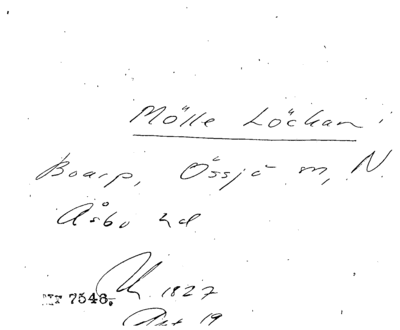 Mölle Löckan i
Boarp, Össjö m, N.
Åsbo hd
7548. 1827
19